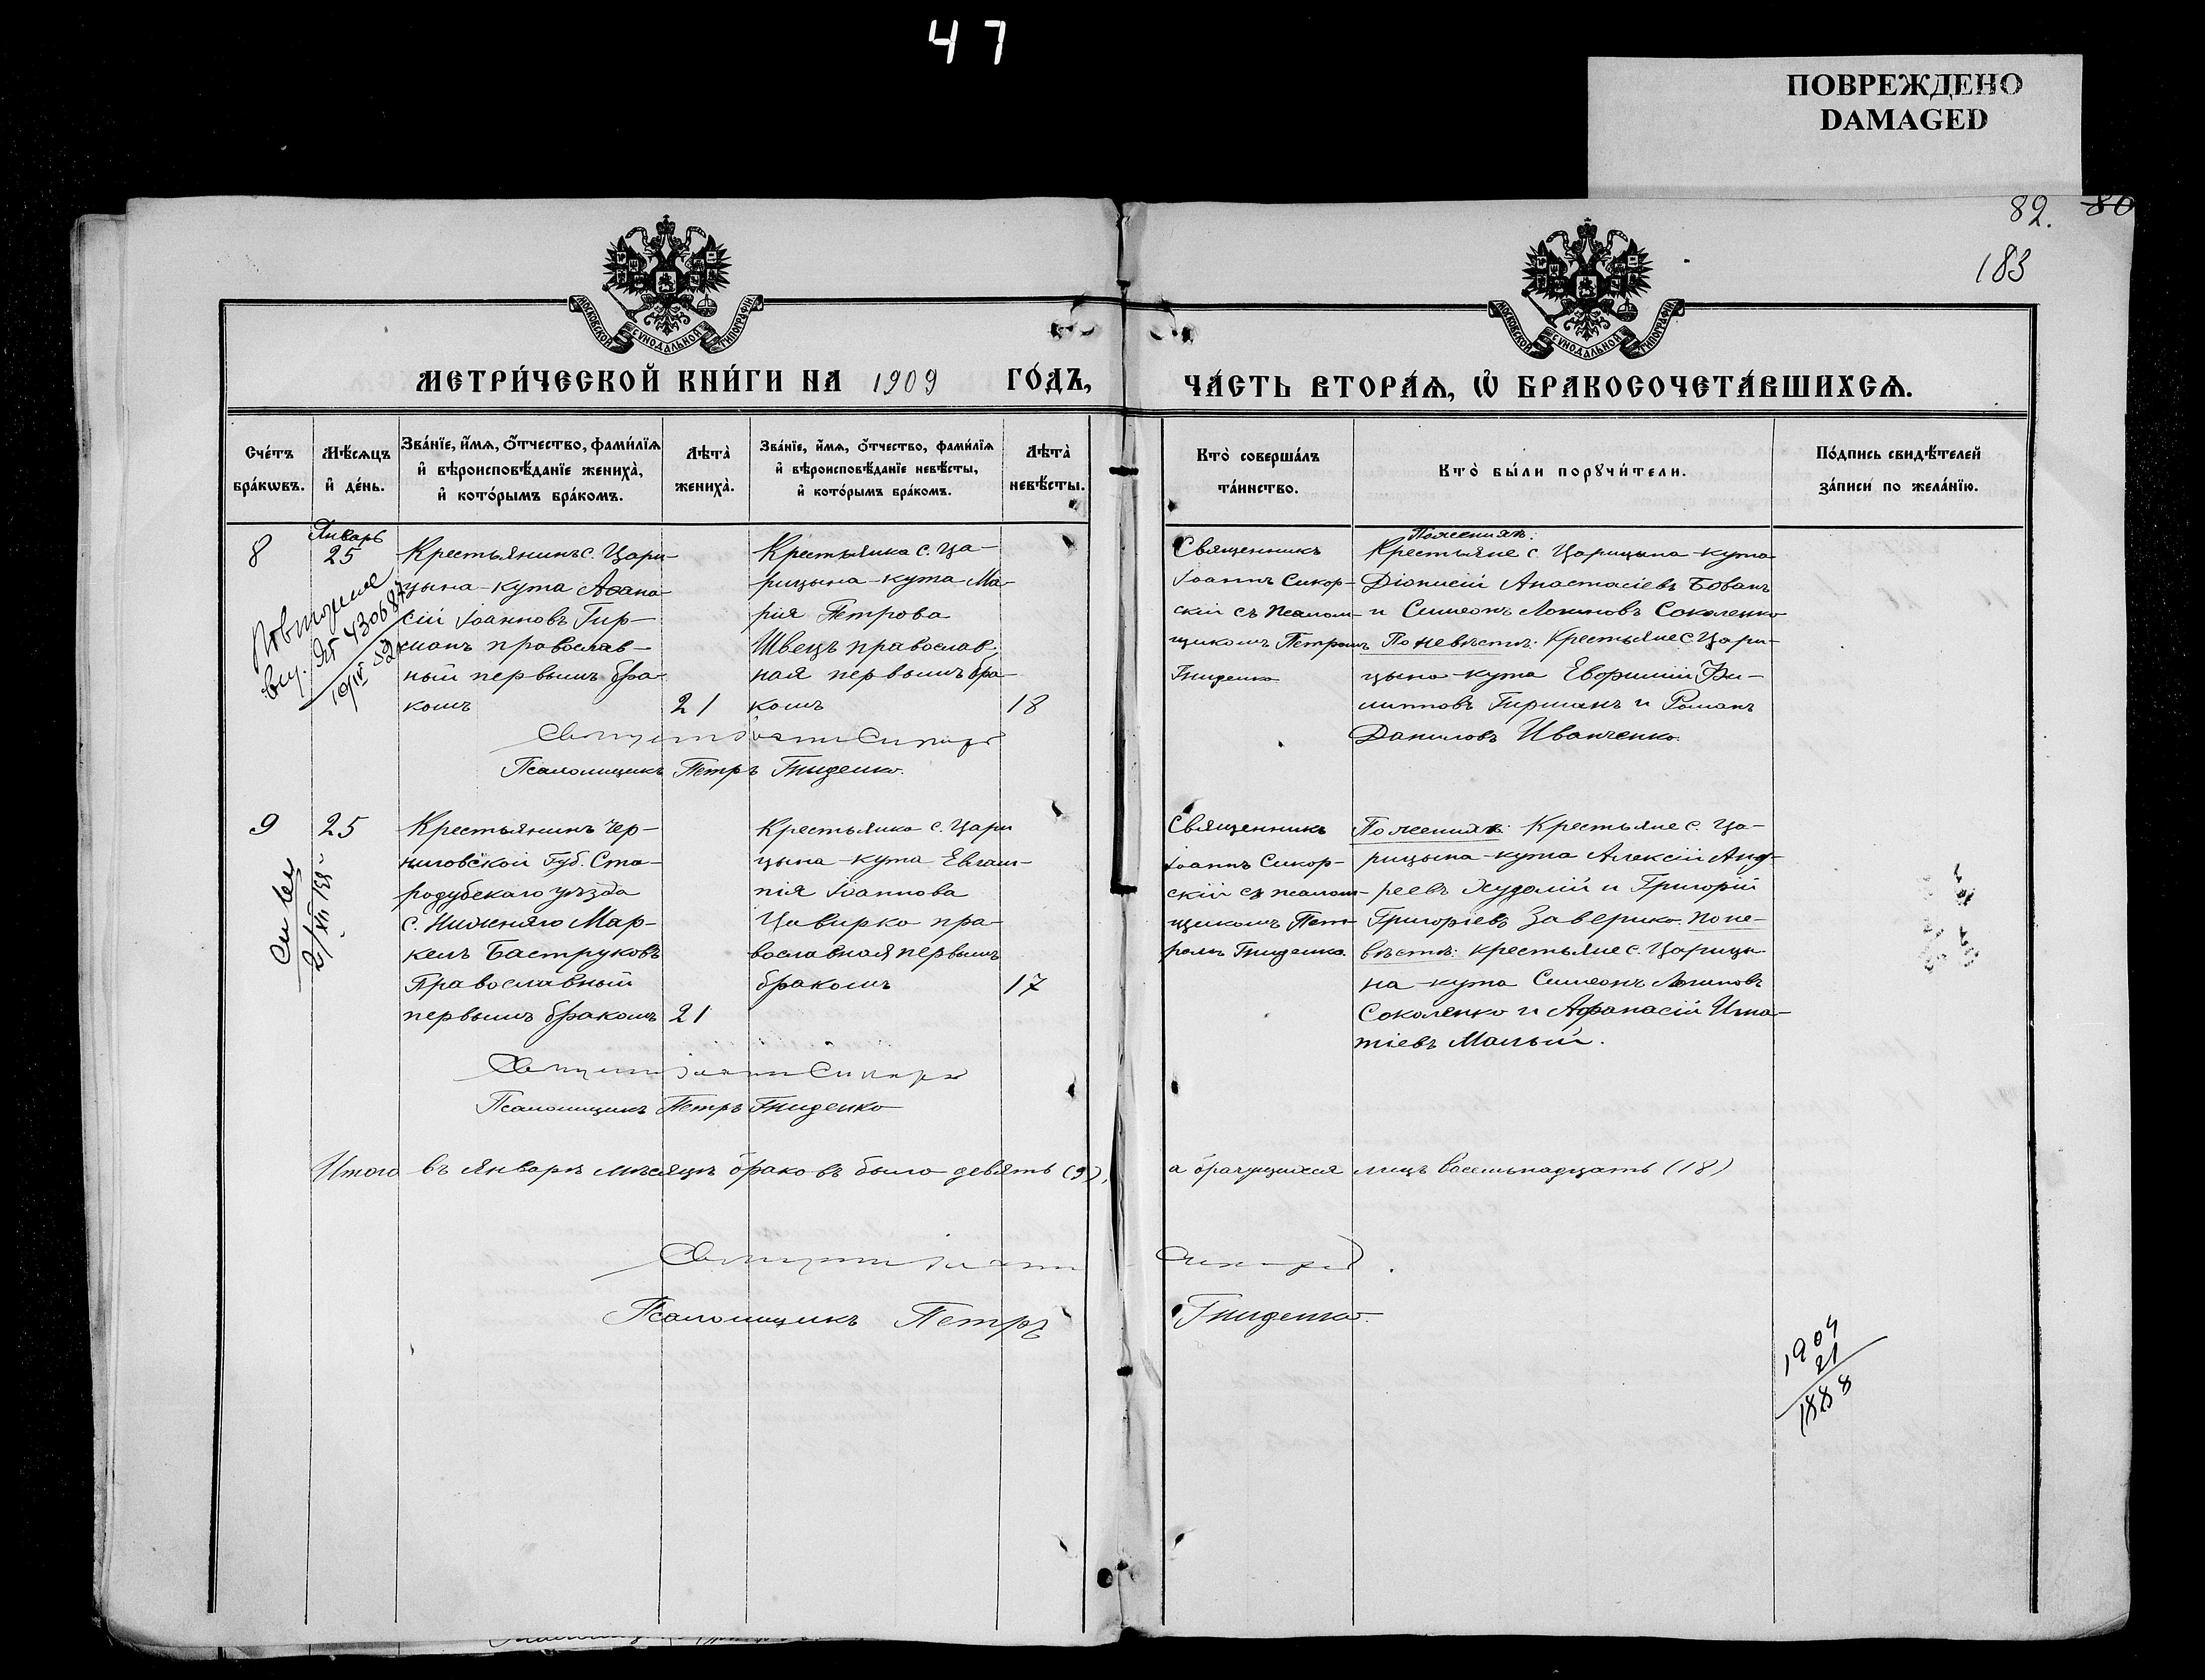 47
ПОВРЕЖДЕНО
DAMAGED
82. 80
183
МОСКОВСКОЙ СУНОДАЛЬНОЙ ТИПОГРАФІИ
МОСКОВСКОЙ СУНОДАЛЬНОЙ ТИПОГРАФІИ
МЕТРИ́ЧЕСКОЙ КНИ́ГИ НА 1909 ГО́ДЪ,
ЧА́СТЬ ВТОРА́Ѧ, Ѽ БРАКОСОЧЕТА́ВШИХСѦ.
Сче́тъ
бра́кѡвъ.
Мѣ́сѧцъ
и҆ де́нь.
Зва́нїе, и҆́мѧ, ѻ҆́тчество, фами́лїѧ
и҆ вѣроисповѣ́данїе жениха̀,
и҆ кото́рымъ бра́комъ.
Лѣта̀
жениха̀.
Зва́нїе, и҆́мѧ, ѻ҆́тчество, фами́лїѧ
и҆ вѣроисповѣ́данїе невѣ́сты,
и҆ кото́рымъ бра́комъ.
Лѣта̀
невѣ́сты.
Кто̀ соверша́лъ
та́инство.
Кто̀ бы́ли порꙋчи́тели.
По́дпись свидѣ́телей
за́писи по жела́нїю.
8
Январь
25
Повторное
10/IV 52
Крестьянинъ с. Цари-
цына-кута Аѳана-
сій Іоанновъ Гир-
манъ православ-
ный первымъ бра-
комъ
21
Крестьянка с. Ца-
рицына-кута Ма-
рія Петрова
Швецъ православ-
ная первымъ бра-
комъ
18
Священникъ
Іоаннъ Сикор-
скій съ псалом-
щикомъ Петромъ
Гниденко
По женихѣ:
Крестьяне с. Царицына-кута
Діонисій Анастасіевъ Бованъ
и Симеонъ Логиновъ Соколенко
По невѣстѣ: Крестьяне с. Цари-
цына-кута Евфимій Фи-
липповъ Гирманъ и Романъ
Даниловъ Иванченко.
Священникъ Іоаннъ Сикорскій
Псаломщикъ Петръ Гниденко.
9
25
Крестьянинъ Чер-
ниговской Губ. Ста-
родубскаго уѣзда
с. Нижняго Мар-
келъ Баструковъ
Православный
первымъ бракомъ
21
Крестьянка с. Цари
цына-кута Евлам-
пія Іоаннова
Цивирко пра-
вославная первымъ
бракомъ
17
Священникъ
Іоаннъ Сикор-
скій съ псалом-
щикомъ Пет-
ромъ Гниденко.
По женихѣ: Крестьяне с. Ца-
рицына-кута Алексій Анд-
реевъ Худолій и Григорій
Григоріевъ Заверико. По не-
вѣстѣ: крестьяне с. Царицы-
на-кута Симеонъ Логиновъ
Соколенко и Афанасій Игна-
тіевъ Малый.
Священникъ Іоаннъ Сикорскій
Псаломщикъ Петръ Гниденко
Итого въ Январѣ мѣсяцѣ браковъ было девять (9),
а брачущихся лицъ восемьнадцать (18)
Священникъ Іоаннъ Сикорскій.
Псаломщикъ Петръ Гниденко.
1909
21
1888